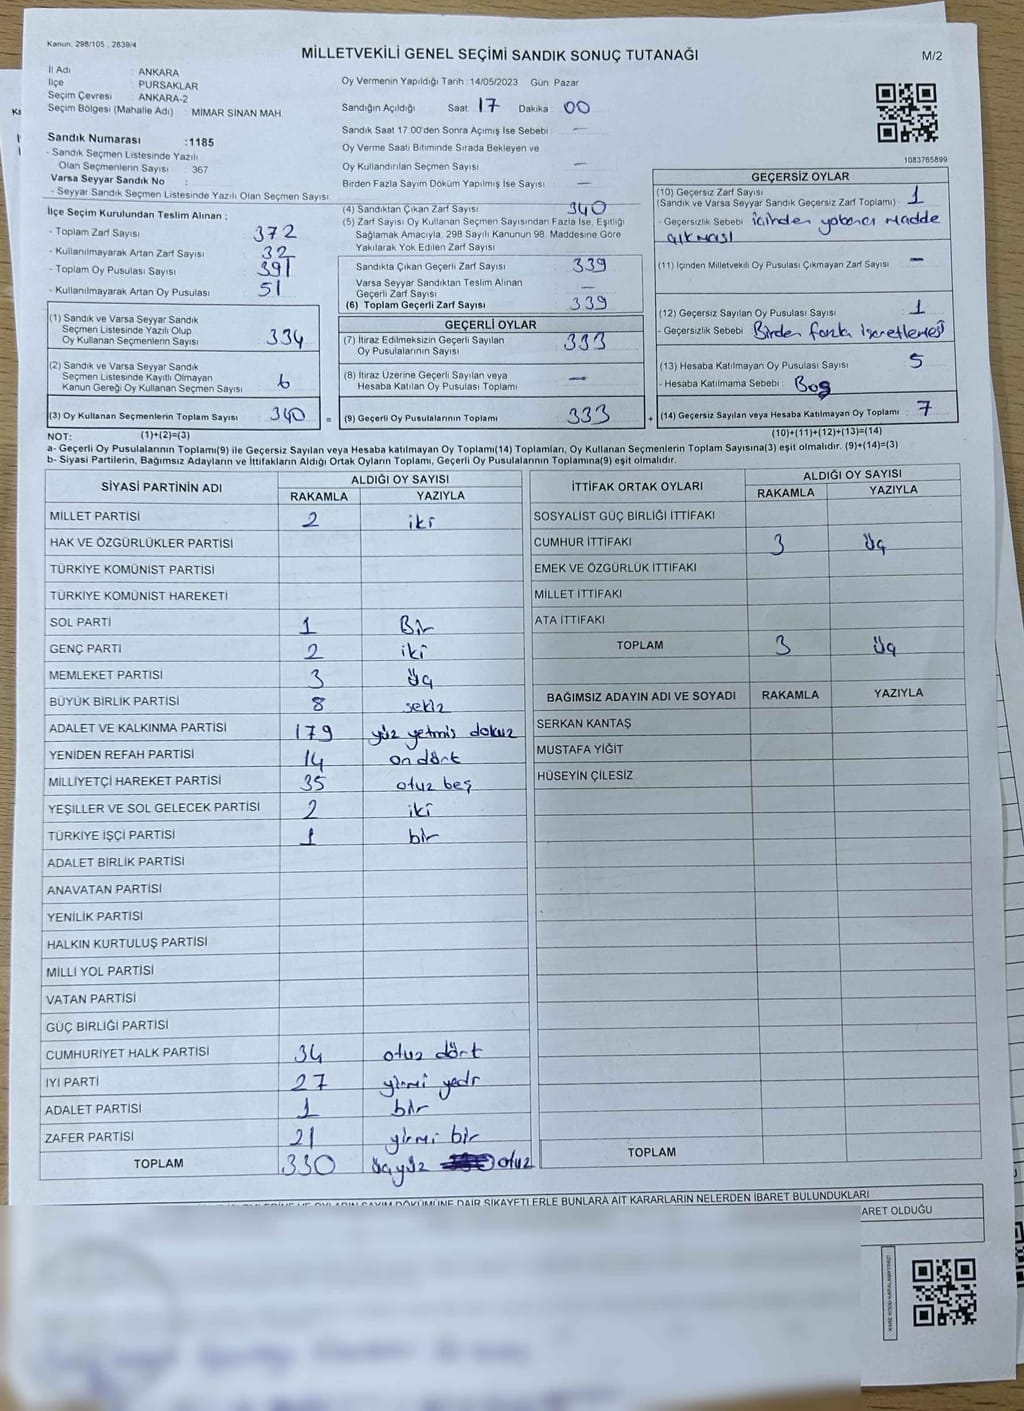 Kanun: 298/105 , 2839/4
MİLLETVEKİLİ GENEL SEÇİMİ SANDIK SONUÇ TUTANAĞI
M/2
İl Adı : ANKARA
İlçe : PURSAKLAR
Seçim Çevresi : ANKARA-2
Seçim Bölgesi (Mahalle Adı) : MİMAR SİNAN MAH.
Sandık Numarası :1185
- Sandık Seçmen Listesinde Yazılı
Olan Seçmenlerin Sayısı : 367
Varsa Seyyar Sandık No :
- Seyyar Sandık Seçmen Listesinde Yazılı Olan Seçmen Sayısı
Oy Vermenin Yapıldığı Tarih : 14/05/2023 Gün: Pazar
Sandığın Açıldığı Saat: 17 Dakika: 00
Sandık Saat 17.00'den Sonra Açımış İse Sebebi : —
Oy Verme Saati Bitiminde Sırada Bekleyen ve
Oy Kullandırılan Seçmen Sayısı : —
Birden Fazla Sayım Döküm Yapılmış İse Sayısı : —
1083765899
İlçe Seçim Kurulundan Teslim Alınan ;
- Toplam Zarf Sayısı : 372
- Kullanılmayarak Artan Zarf Sayısı : 32
- Toplam Oy Pusulası Sayısı : 391
- Kullanılmayarak Artan Oy Pusulası : 51
(1) Sandık ve Varsa Seyyar Sandık
Seçmen Listesinde Yazılı Olup
Oy Kullanan Seçmenlerin Sayısı : 334
(2) Sandık ve Varsa Seyyar Sandık
Seçmen Listesinde Kayıtlı Olmayan
Kanun Gereği Oy Kullanan Seçmen Sayısı : 6
(3) Oy Kullanan Seçmenlerin Toplam Sayısı : 340 =
(4) Sandıktan Çıkan Zarf Sayısı : 340
(5) Zarf Sayısı Oy Kullanan Seçmen Sayısından Fazla İse, Eşitliği
Sağlamak Amacıyla; 298 Sayılı Kanunun 98. Maddesine Göre
Yakılarak Yok Edilen Zarf Sayısı
Sandıkta Çıkan Geçerli Zarf Sayısı : 339
Varsa Seyyar Sandıktan Teslim Alınan
Geçerli Zarf Sayısı : —
(6) Toplam Geçerli Zarf Sayısı : 339
GEÇERLİ OYLAR
(7) İtiraz Edilmeksizin Geçerli Sayılan
Oy Pusulalarının Sayısı : 333
(8) İtiraz Üzerine Geçerli Sayılan veya
Hesaba Katılan Oy Pusulası Toplamı : —
(9) Geçerli Oy Pusulalarının Toplamı : 333 +
GEÇERSİZ OYLAR
(10) Geçersiz Zarf Sayısı
(Sandık ve Varsa Seyyar Sandık Geçersiz Zarf Toplamı) : 1
- Geçersizlik Sebebi : içinden yabancı madde
çıkması
(11) İçinden Milletvekili Oy Pusulası Çıkmayan Zarf Sayısı : —
(12) Geçersiz Sayılan Oy Pusulası Sayısı : 1
- Geçersizlik Sebebi : Birden fazla işaretlemesi
(13) Hesaba Katılmayan Oy Pusulası Sayısı : 5
- Hesaba Katılmama Sebebi : Boş
(14) Geçersiz Sayılan veya Hesaba Katılmayan Oy Toplamı : 7
NOT: (1)+(2)=(3)
(10)+(11)+(12)+(13)=(14)
a- Geçerli Oy Pusulalarının Toplamı(9) ile Geçersiz Sayılan veya Hesaba katılmayan Oy Toplamı(14) Toplamları, Oy Kullanan Seçmenlerin Toplam Sayısına(3) eşit olmalıdır. (9)+(14)=(3)
b- Siyasi Partilerin, Bağımsız Adayların ve İttifakların Aldığı Ortak Oyların Toplamı, Geçerli Oy Pusulalarının Toplamına(9) eşit olmalıdır.
SİYASİ PARTİNİN ADI ALDIĞI OY SAYISI
RAKAMLA YAZIYLA
MİLLET PARTİSİ 2 iki
HAK VE ÖZGÜRLÜKLER PARTİSİ
TÜRKİYE KOMÜNİST PARTİSİ
TÜRKİYE KOMÜNİST HAREKETİ
SOL PARTİ 1 Bir
GENÇ PARTİ 2 iki
MEMLEKET PARTİSİ 3 üç
BÜYÜK BİRLİK PARTİSİ 8 sekiz
ADALET VE KALKINMA PARTİSİ 179 yüz yetmiş dokuz
YENİDEN REFAH PARTİSİ 14 on dört
MİLLİYETÇİ HAREKET PARTİSİ 35 otuz beş
YEŞİLLER VE SOL GELECEK PARTİSİ 2 iki
TÜRKİYE İŞÇİ PARTİSİ 1 bir
ADALET BİRLİK PARTİSİ
ANAVATAN PARTİSİ
YENİLİK PARTİSİ
HALKIN KURTULUŞ PARTİSİ
MİLLİ YOL PARTİSİ
VATAN PARTİSİ
GÜÇ BİRLİĞİ PARTİSİ
CUMHURİYET HALK PARTİSİ 34 otuz dört
İYİ PARTİ 27 yirmi yedi
ADALET PARTİSİ 1 bir
ZAFER PARTİSİ 21 yirmi bir
TOPLAM 330 üçyüz otuz
İTTİFAK ORTAK OYLARI ALDIĞI OY SAYISI
RAKAMLA YAZIYLA
SOSYALİST GÜÇ BİRLİĞİ İTTİFAKI
CUMHUR İTTİFAKI 3 üç
EMEK VE ÖZGÜRLÜK İTTİFAKI
MİLLET İTTİFAKI
ATA İTTİFAKI
TOPLAM 3 üç
BAĞIMSIZ ADAYIN ADI VE SOYADI RAKAMLA YAZIYLA
SERKAN KANTAŞ
MUSTAFA YİĞİT
HÜSEYİN ÇİLESİZ
TOPLAM
OYLARIN SAYIM DÖKÜMÜNE DAİR ŞİKAYETLERLE BUNLARA AİT KARARLARIN NELERDEN İBARET BULUNDUKLARI
ARET OLDUĞU